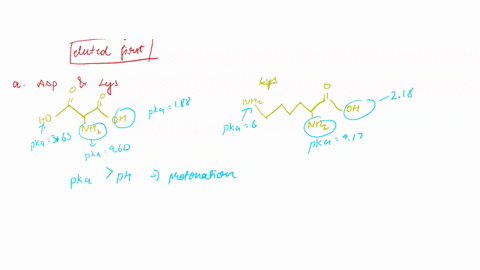 eluted first
a. Asp & Lys
Lys
O
O
HO
OH
NH2
pka = 1.88
pka = 3.65
pka = 9.60
NH2
O
OH
2.18
NH2
pka = 6
pka = 9.17
pka > pH → protonation